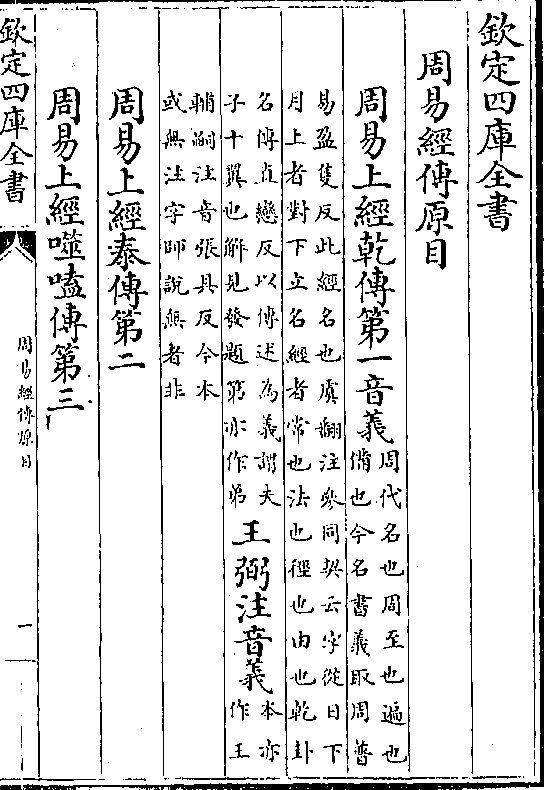 欽定四庫全書
周易經傳原目
周易上經乾傳第一音義
周代名也周至也遍也
備也今名書義取周普
易盈隻反此經名也虞翻注參同契云字從日下
月上者對下立名經者常也法也徑也由也乾卦
名傳直戀反以傳述為義謂夫
子十翼也解見發題第亦作弟
王弼注音義
本亦
作王
輔嗣注音張具反今本
或無注字師說無者非
周易上經泰傳第二
周易上經噬嗑傳第三
欽定四庫全書
周易經傳原目
一